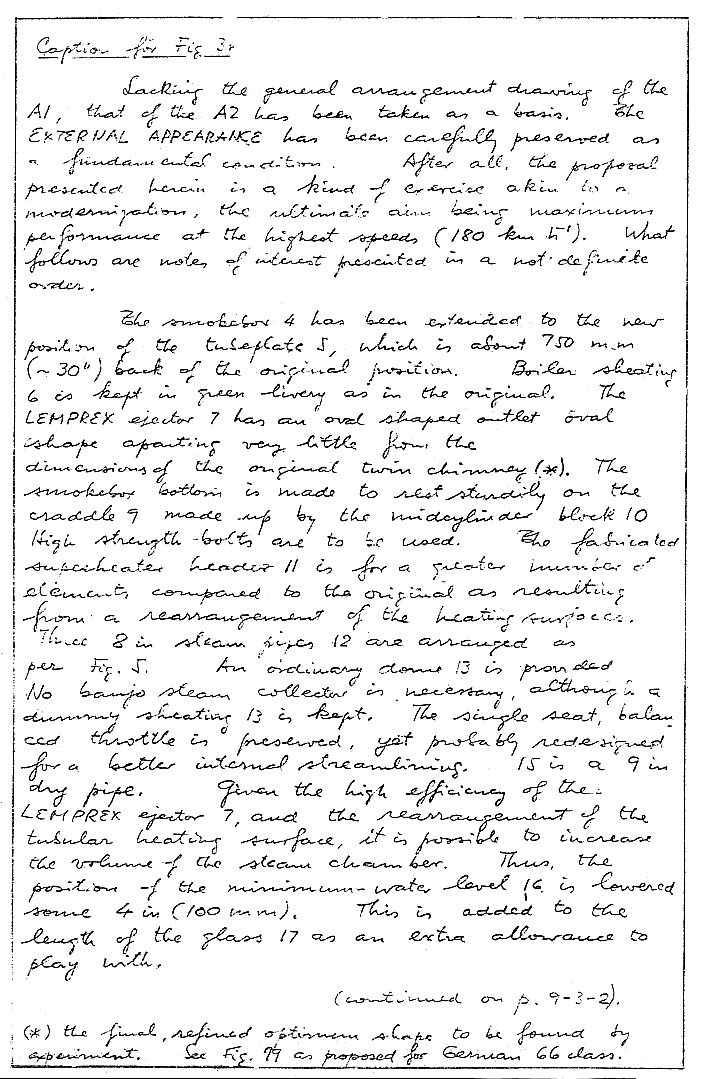 Caption for Fig 3:
Lacking the general arrangement drawing of the
A1, that of the A2 has been taken as a basis. The
EXTERNAL APPEARANCE has been carefully preserved as
a fundamental condition. After all, the proposal
presented herein is a kind of exercise akin to a
modernization, the ultimate aim being maximum
performance at the highest speeds (180 km h⁻¹). What
follows are notes of interest presented in a not-definite
order.
The smokebox 4 has been extended to the new
position of the tubeplate 5, which is about 750 mm
(~30") back of the original position. Boiler sheating
6 is kept in green livery as in the original. The
LEMPREX ejector 7 has an oval shaped outlet oval
shape aparting very little from the
dimensions of the original twin chimney (*). The
smokebox bottom is made to rest sturdily on the
craddle 9 made up by the midcylinder block 10
High strength bolts are to be used. The fabricated
superheater header 11 is for a greater number of
elements compared to the original as resulting
from a rearrangement of the heating surfaces.
Three 8 in steam pipes 12 are arranged as
per Fig. 5. An ordinary dome 13 is provided
No banjo steam collector is necessary, although a
dummy sheating 13 is kept. The single seat, balan
ced throttle is preserved, yet probably redesigned
for a better internal streamlining. 15 is a 9 in
dry pipe. Given the high efficiency of the
LEMPREX ejector 7, and the rearrangement of the
tubular heating surface, it is possible to increase
the volume of the steam chamber. Thus, the
position of the minimum-water level 16 is lowered
some 4 in (100 mm). This is added to the
length of the glass 17 as an extra allowance to
play with.
(continued on p. 9-3-2).
(*) the final, refined optimum shape to be found by
experiment. See Fig. 99 as proposed for German 66 class.